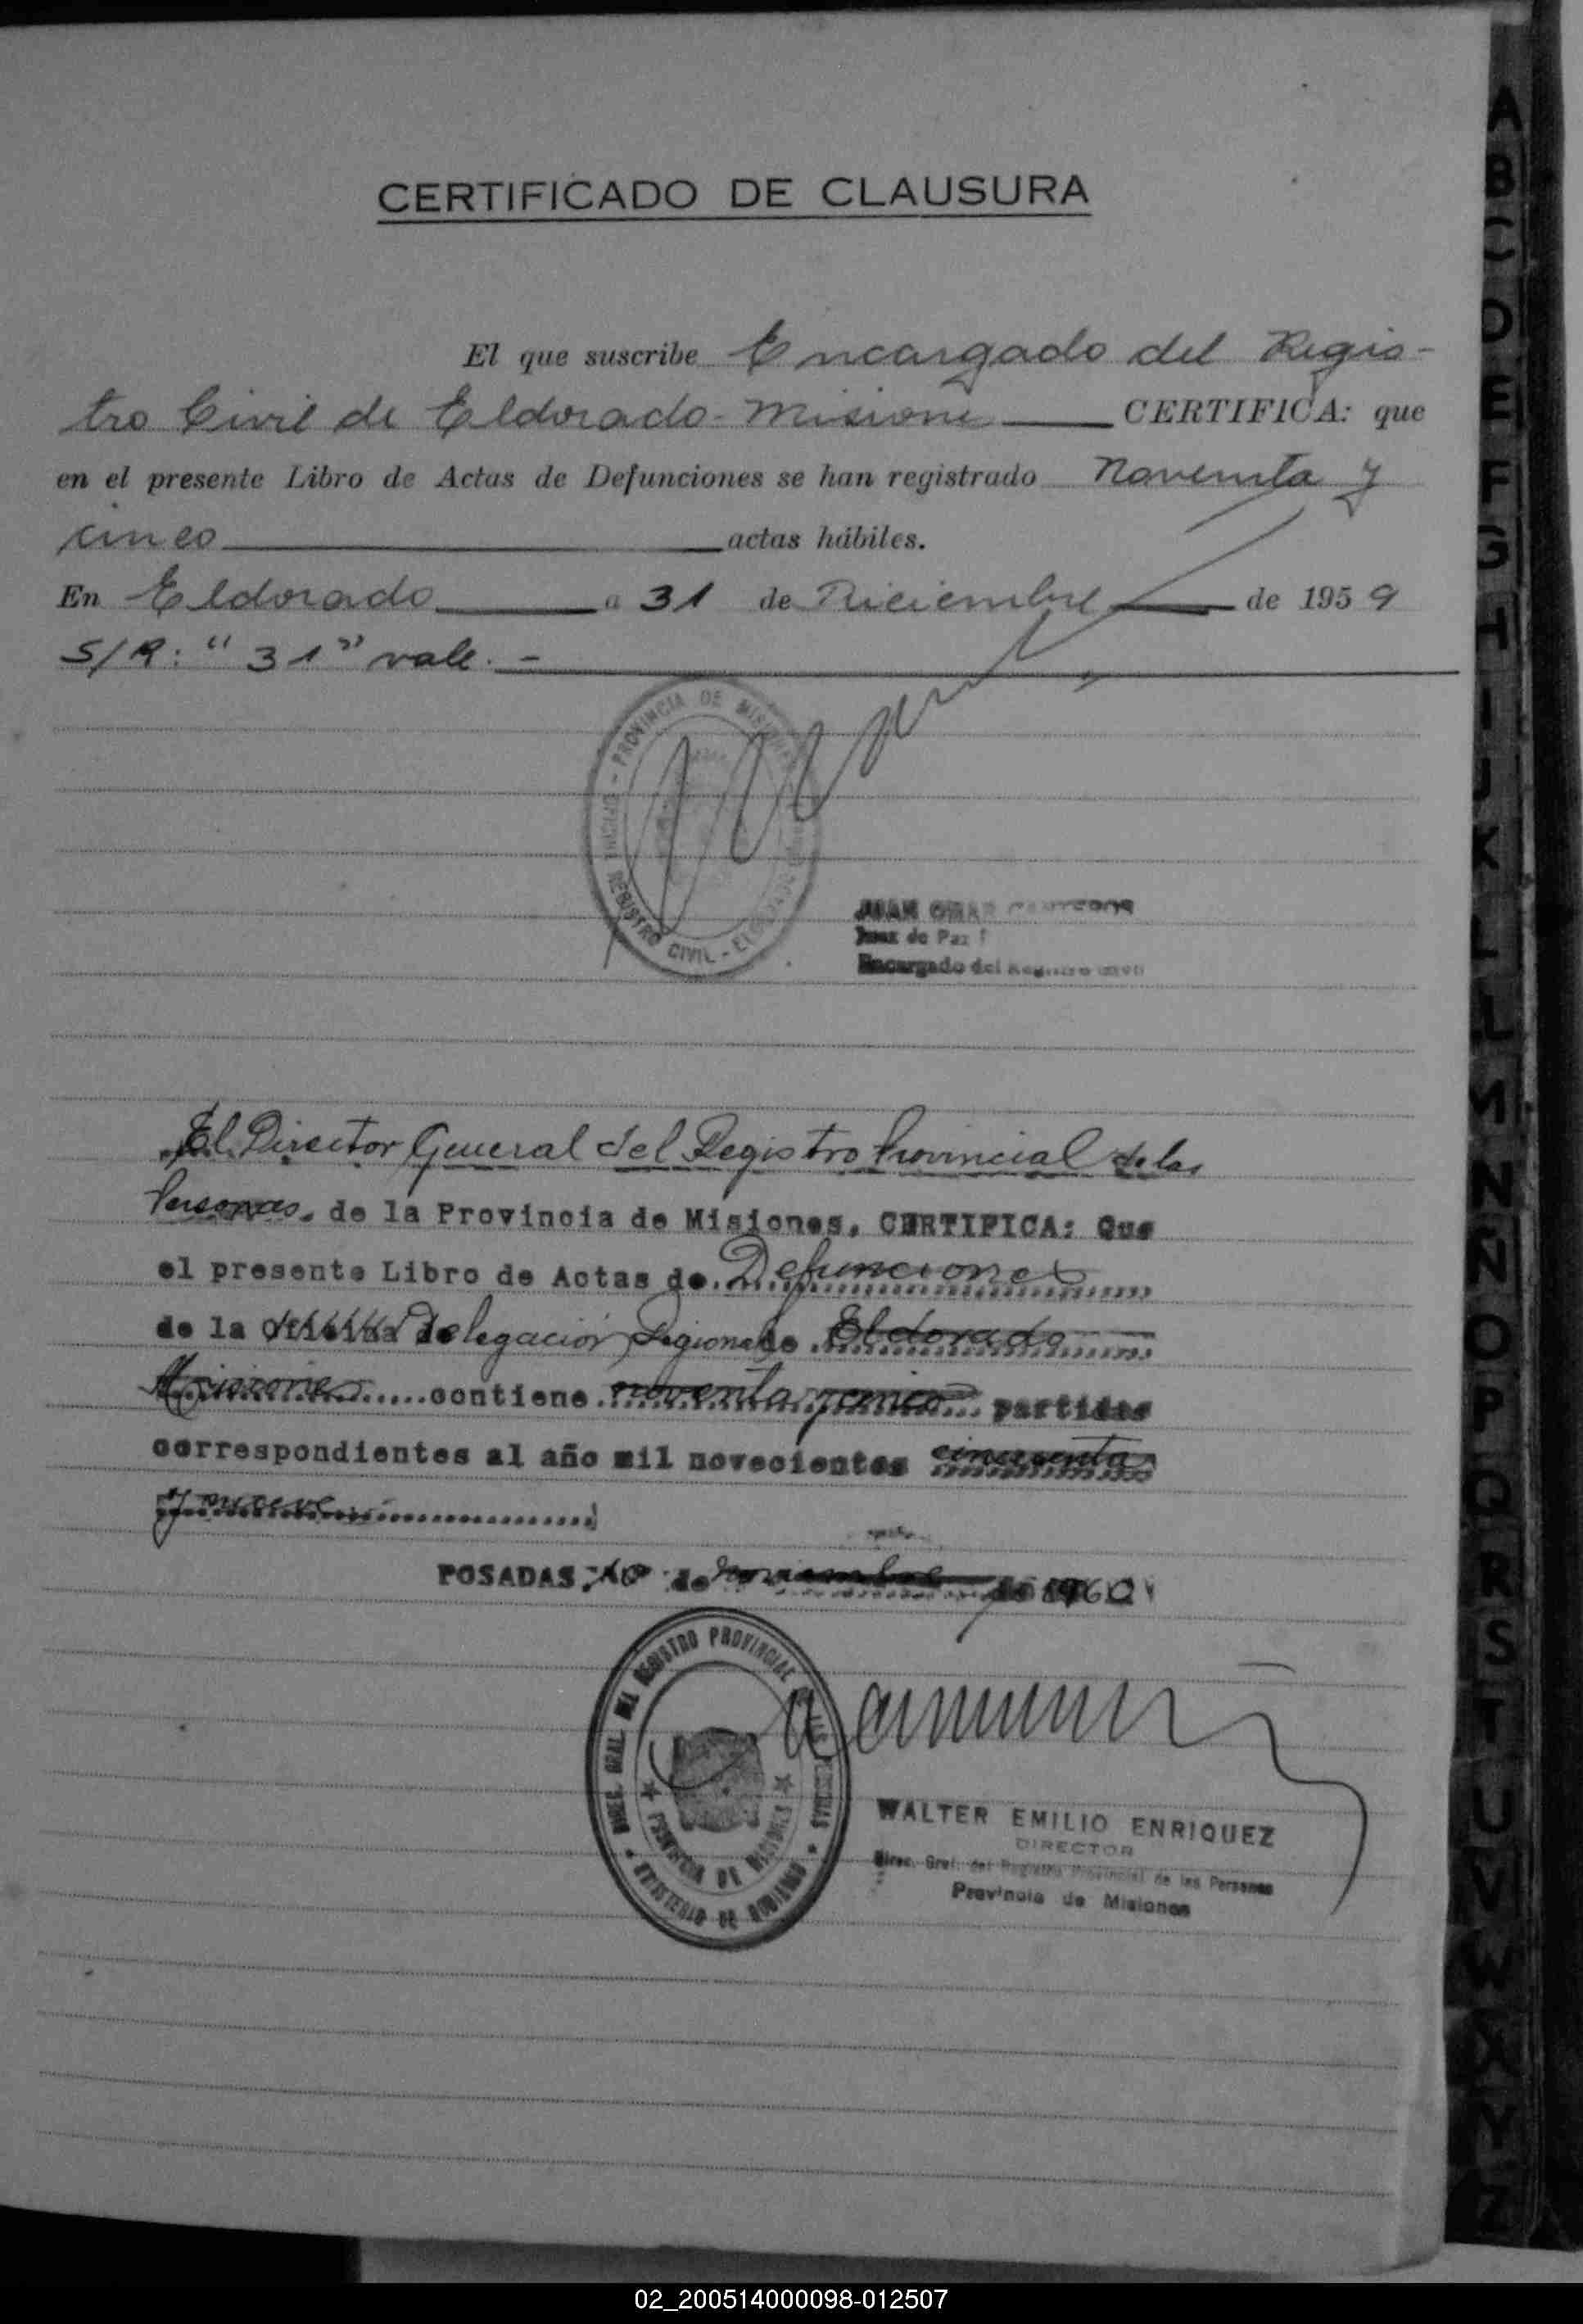 CERTIFICADO DE CLAUSURA
El que suscribe Encargado del Regis-
tro Civil de Eldorado - Misiones CERTIFICA: que
en el presente Libro de Actas de Defunciones se han registrado noventa y
cinco actas hábiles.
En Eldorado a 31 de Diciembre de 1959
S/R: "31" vale. -
PROVINCIA DE MISIONES
REGISTRO CIVIL - ELDORADO
JUAN OMAR
Juez de Paz
Encargado del Registro Civil
El Director General del Registro Provincial de las
Personas, de la Provincia de Misiones, CERTIFICA: Que
el presente Libro de Actas de Defunciones
de la Oficina Delegación Regional de Eldorado
Misiones contiene noventa y cinco partidas
correspondientes al año mil novecientos cincuenta
y nueve
POSADAS, 10 de noviembre de 1960
DIREC. GRAL. DEL REGISTRO PROVINCIAL DE LAS PERSONAS
PROVINCIA DE MISIONES
MINISTERIO DE GOBIERNO
WALTER EMILIO ENRIQUEZ
DIRECTOR
Direc. Gral. del Registro Provincial de las Personas
Provincia de Misiones
A
B
C
D
E
F
G
H
I
J
K
L
LL
M
N
Ñ
O
P
Q
R
S
T
U
V
W
X
Y
Z
02_200514000098-012507